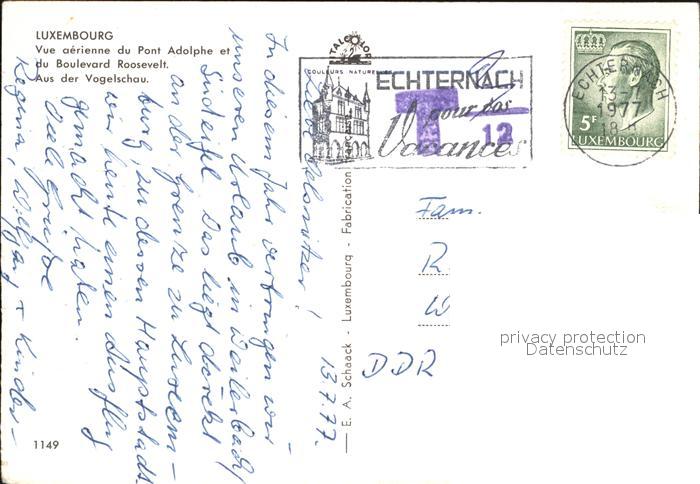 LUXEMBOURG
Vue aérienne du Pont Adolphe et
du Boulevard Roosevelt.
Aus der Vogelschau.
TALCOLOR
COULEURS NATURE
E. A. Schaack - Luxembourg - Fabrication
1149
ECHTERNACH
pour vos
Vacances
T
12
ECHTERNACH
13-7
1977
18
5F
LUXEMBOURG
13.7.77.
Liebe
In diesem Jahr verbringen wir
unseren Urlaub in Weilerbach/
Südeifel. Das liegt direkt
an der Grenze zu Luxem-
burg, zu dessen Hauptstadt
wir heute einen Ausflug
gemacht haben.
Viele Grüße
Regina, Wolfgang + Kinder
Fam.
R
W
DDR
privacy protection
Datenschutz